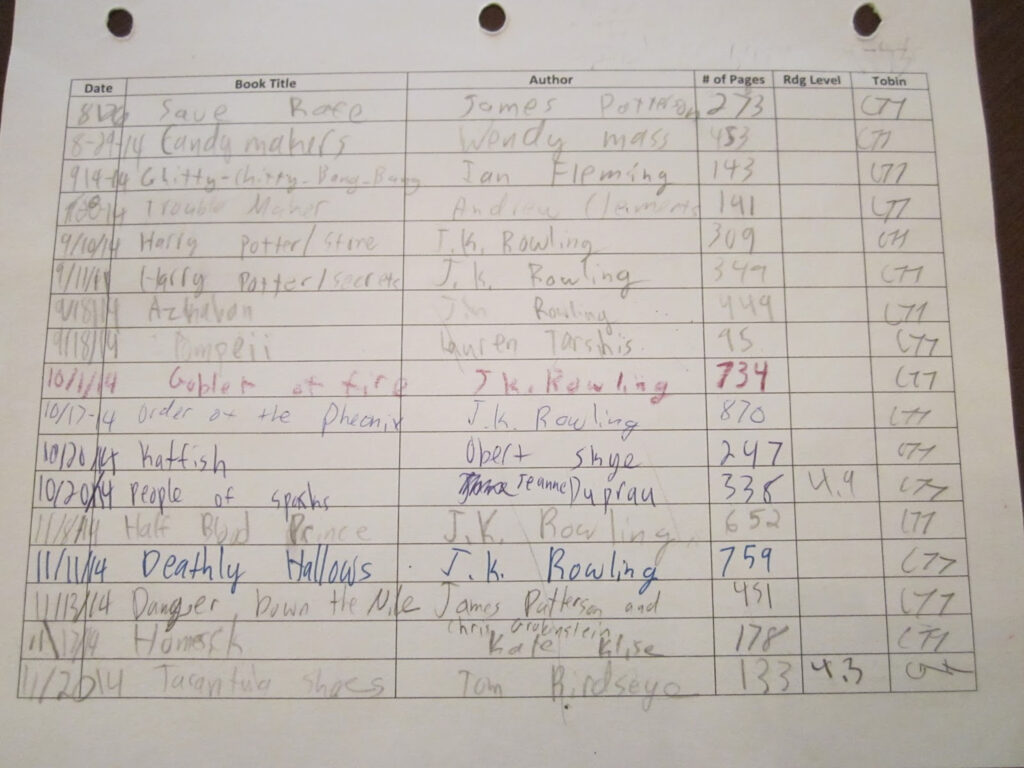 Date Book Title Author # of Pages Rdg Level Tobin
Save Rafe James Patterson 273
8-29-14 Candy makers Wendy mass 453
9/4-14 Chitty-Chitty-Bang-Bang Ian Fleming 143
Trouble Maker Andrew Clements 141
9/10/14 Harry Potter/Stone J.K. Rowling 309
9/11/14 Harry Potter/secrets J.K. Rowling 341
9/18/14 Azkaban Rowling 449
9/18/14 Pompeii Lauren Tarshis 95
10/1/14 Goblet of fire J.K. Rowling 734
10/17-14 Order of the Pheonix J.K. Rowling 870
10/20/14 Katfish Obert Skye 247
10/20/14 People of sparks Jeanne Duprau 338 4.9
11/8/14 Half Blood Prince J.K. Rowling 652
11/11/14 Deathly Hallows J.K. Rowling 759
11/13/14 Danger Down the Nile James Patterson and 451
Chris Grabenstein
Kate Klise 178
11/20/14 Tarantula shoes Tom Birdseye 133 4.3